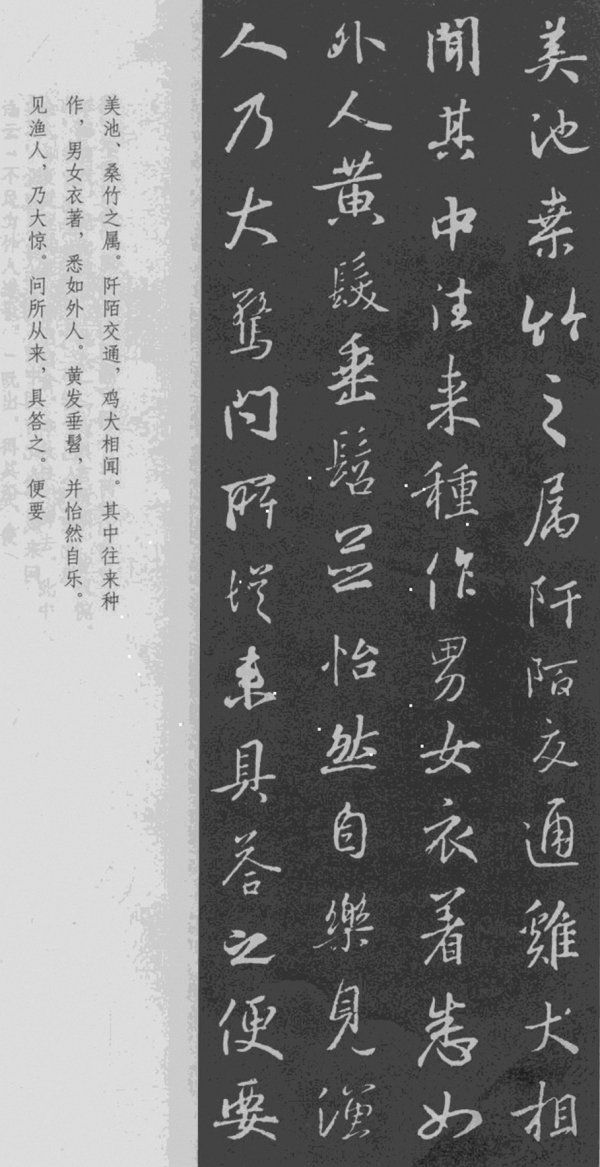 美池桑竹之属阡陌交通雞犬相
聞其中往来種作男女衣着悉如
外人黄髮垂髫並怡然自樂見漁
人乃大驚問所從来具荅之便要
美池、桑竹之属。阡陌交通，鸡犬相闻。其中往来种
作，男女衣著，悉如外人。黄发垂髫，并怡然自乐。
见渔人，乃大惊。问所从来，具答之。便要